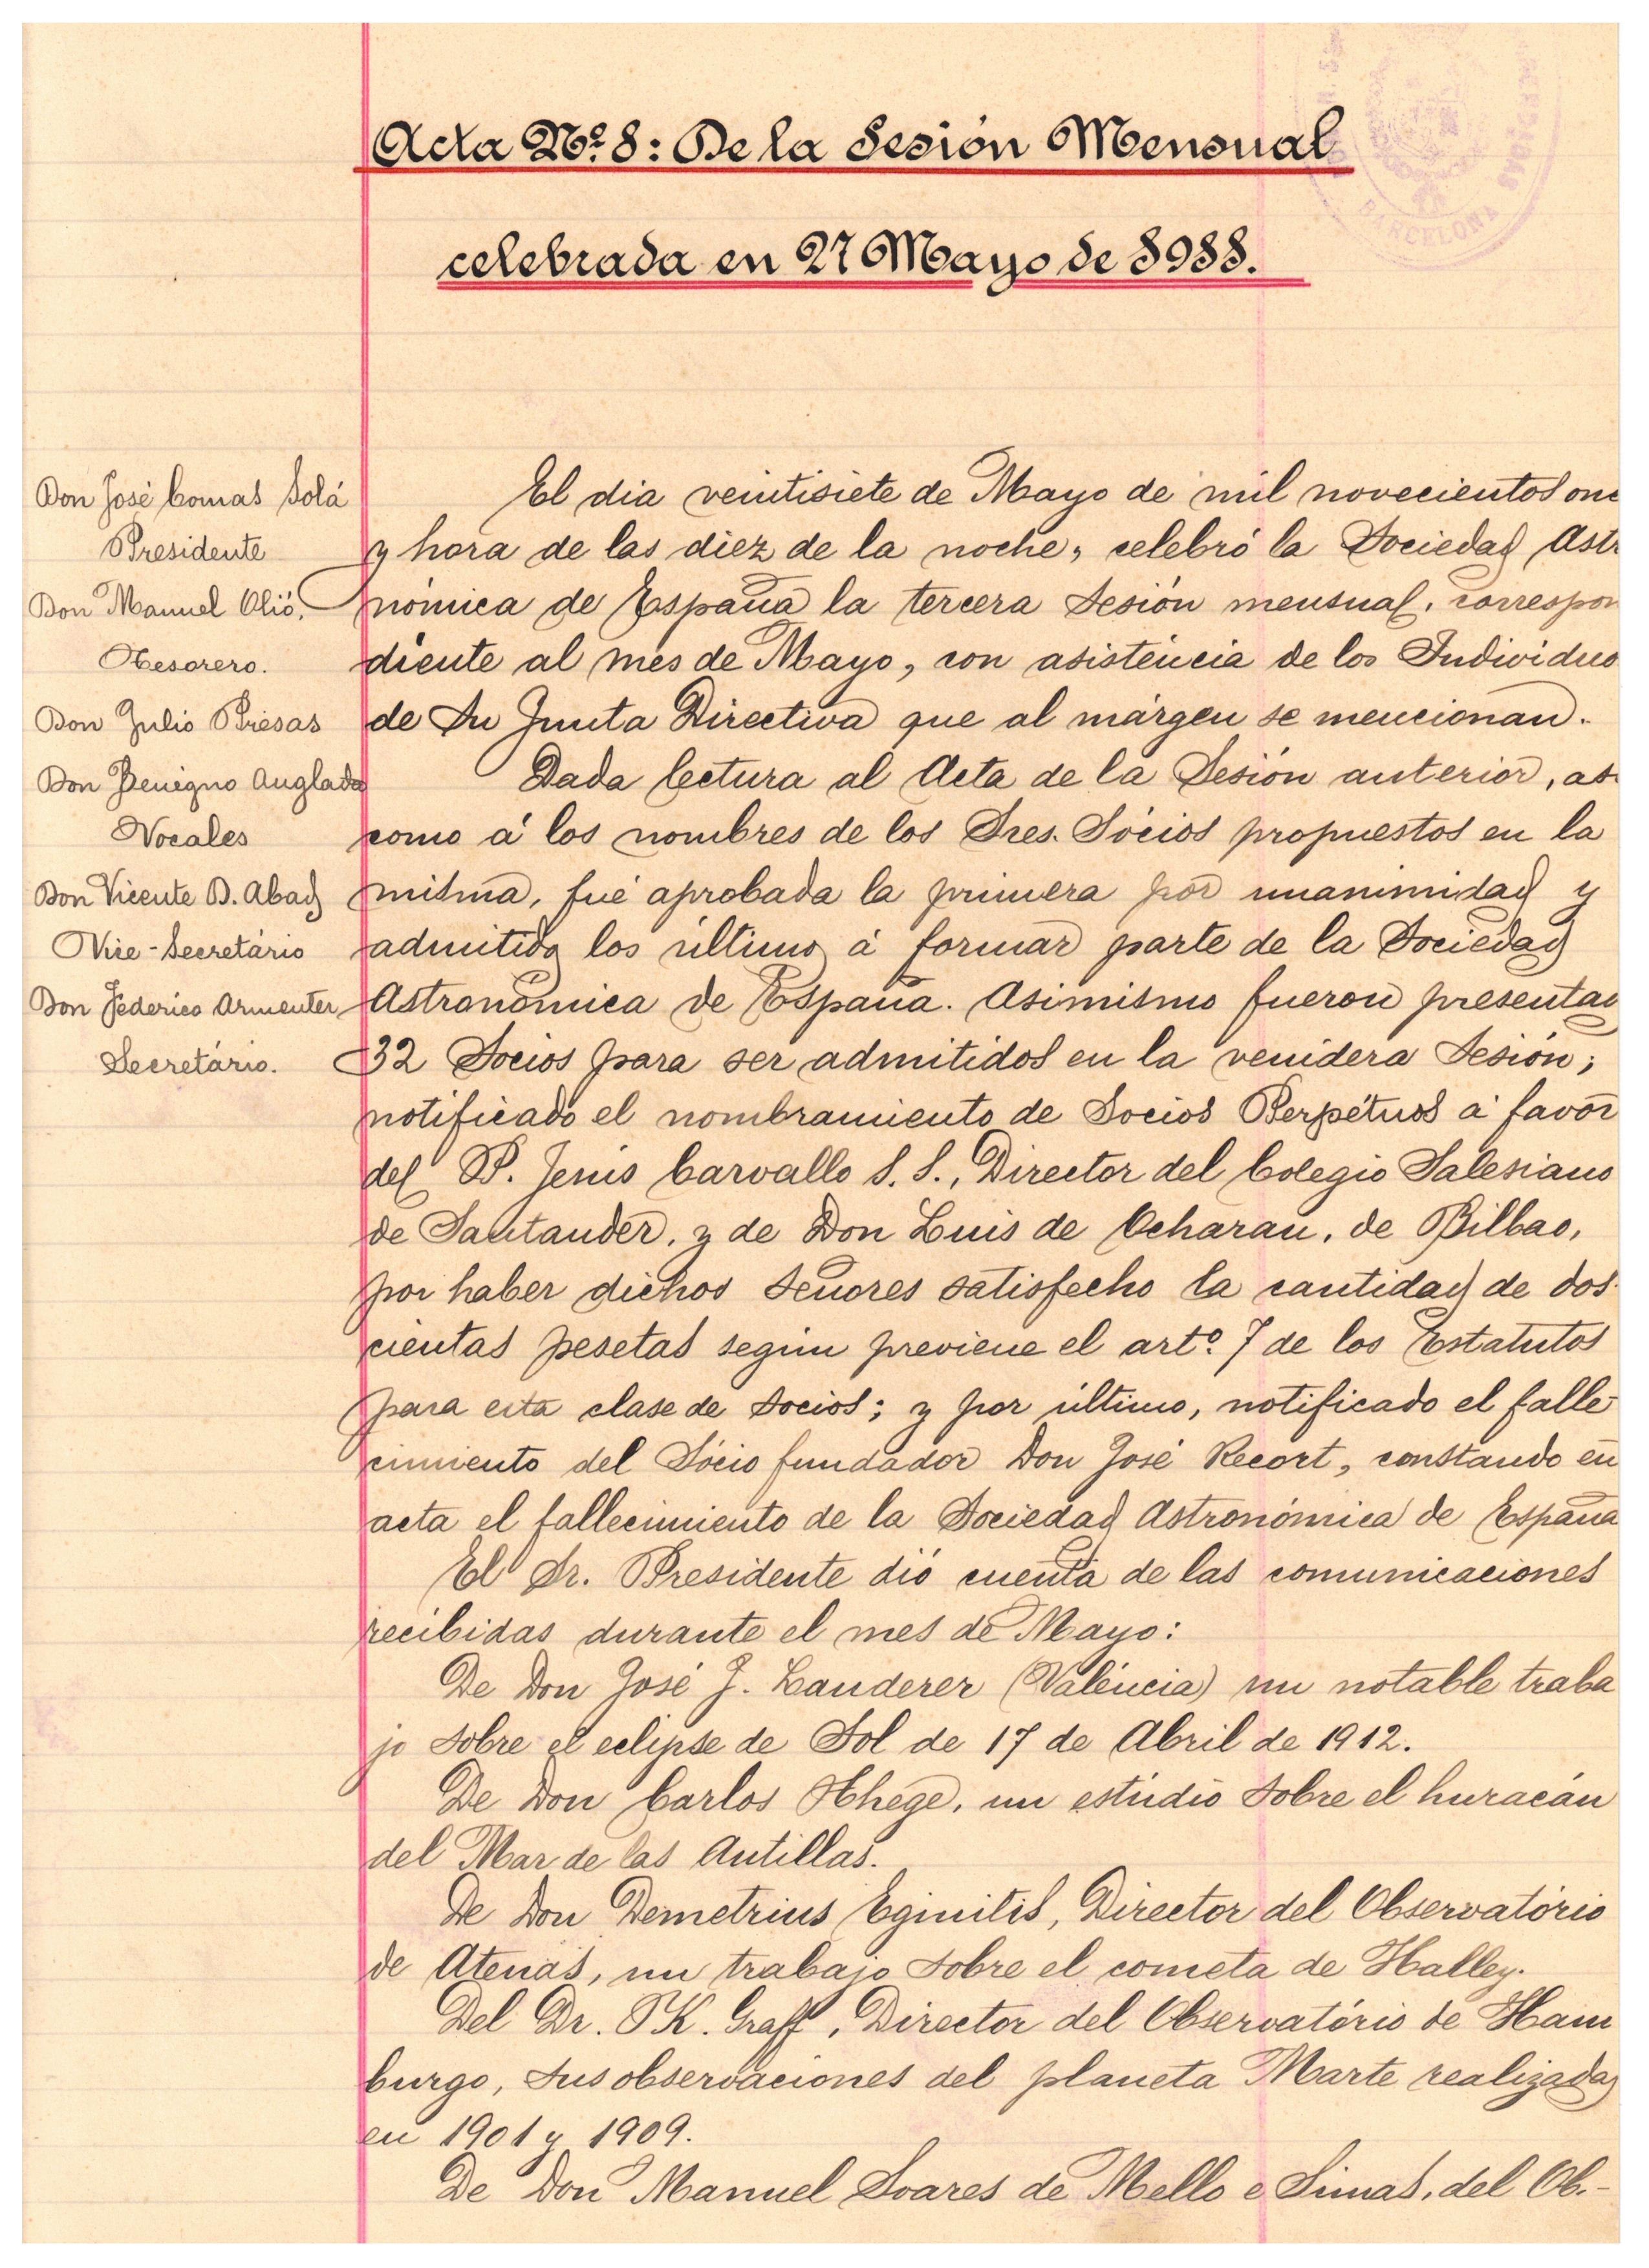 Acta Nº 8: De la Sesión Mensual
celebrada en 27 Mayo de 1911.
Don José Comas Solá
Presidente
Don Manuel Olió,
Tesorero.
Don Julio Presas
Don Benigno Anglada
Vocales
Don Vicente B. Abad
Vice-Secretário
Don Federico Armenter
Secretário.
El dia veintisiete de Mayo de mil novecientos onc
y hora de las diez de la noche, celebró la Sociedad Astr
nómica de España la tercera Sesión mensual, correspon
diente al mes de Mayo, con asistencia de los Individuo
de Su Junta Directiva que al márgen se mencionan.
Dada lectura al Acta de la Sesión anterior, as
como á los nombres de los Sres. Sócios propuestos en la
misma, fué aprobada la primera por unanimidad y
admitido los último á formar parte de la Sociedad
Astronómica de España. Asimismo fueron presentad
32 Socios para ser admitidos en la venidera Sesión;
notificado el nombramiento de Socios Perpétuos á favor
del P. Jenis Carvallo S. S., Director del Colegio Salesiano
de Santander, y de Don Luis de Ocharan, de Bilbao,
por haber dichos Señores satisfecho la cantidad de dos-
cientas pesetas segun previene el artº 7 de los Estatutos
para esta clase de Socios; y por último, notificado el falle-
cimiento del Sócio fundador Don José Recort, constando en
acta el fallecimiento de la Sociedad Astronómica de España
El Sr. Presidente dió cuenta de las comunicaciones
recibidas durante el mes de Mayo:
De Don José J. Landerer (Valéncia) un notable traba
jo Sobre el eclipse de Sol de 17 de Abril de 1912.
De Don Carlos Hhege, un estúdio Sobre el huracán
del Mar de las Antillas.
De Don Demetrius Eginitis, Director del Observatório
de Atenas, un trabajo Sobre el cometa de Halley.
Del Dr. K. Graff, Director del Observatório de Ham
burgo, Sus observaciones del planeta Marte realizadas
en 1901 y 1909.
De Don Manuel Soares de Mello e Simas, del Ob.-
BARCELONA